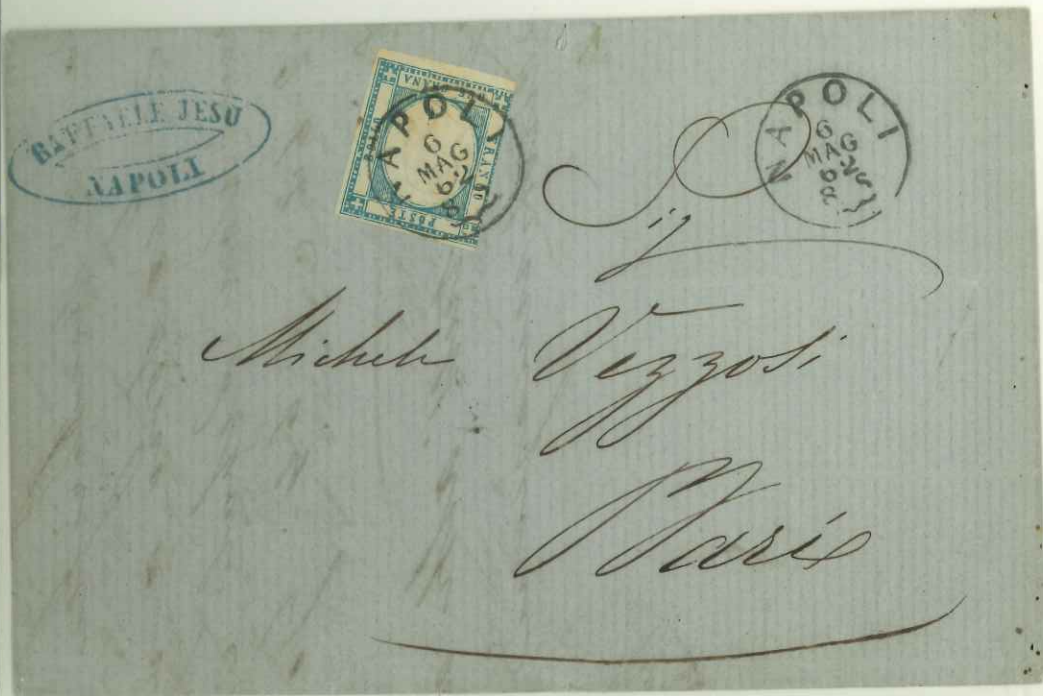 RAFFAELE JESU
NAPOLI
NAPOLI
6
MAG
62
POSTE
NAPOLI
6
MAG
62
Sig
Michele Vezzosi
Bari